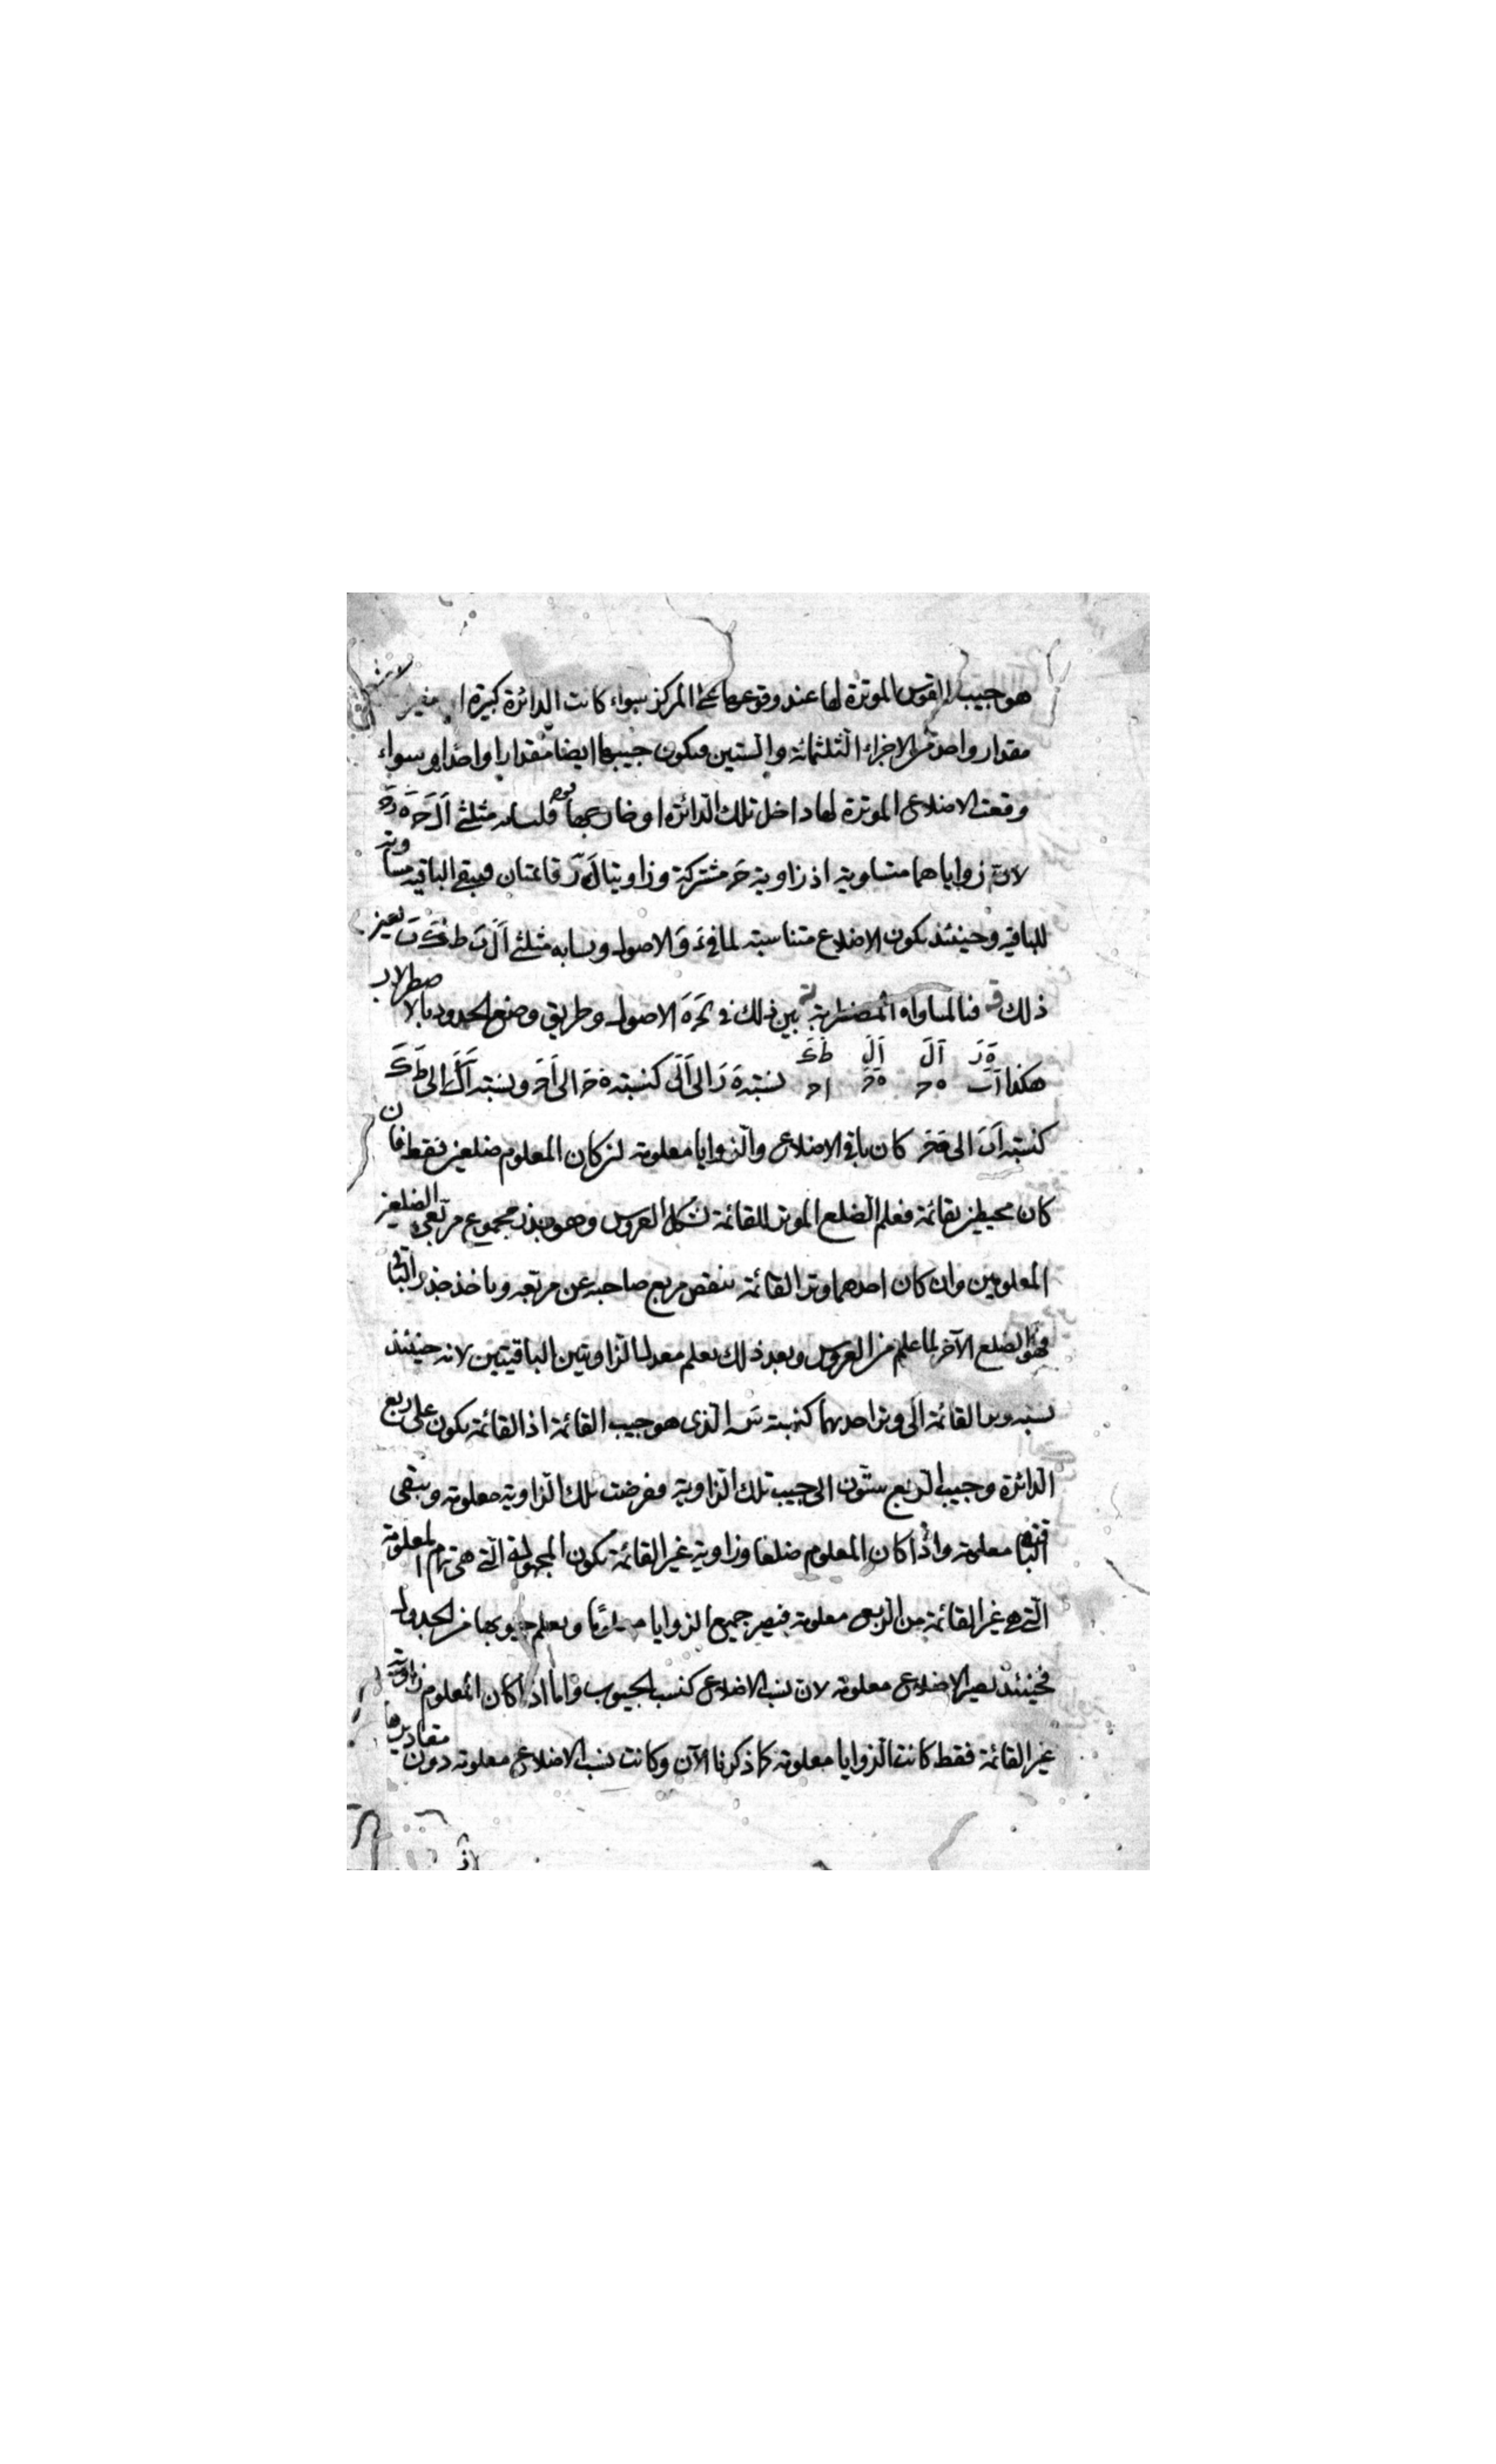 هو جيب القوس الموترة لها عند وقوعها على المركز سواء كانت الدائرة كبيرة
مقدار واحد من الاجزاء الثلثمائة والستين فيكون جيبها ايضا مقدارا واحدا وسواء
وقعت الاضلاع الموترة لها داخل تلك الدائرة او خارجها مثلثى
لان زواياهما متساوية اذ زاوية ح مشتركة وزاويتا ل ر قائمتان فيبقى الباقية مساوية
للباقية وحينئذ يكون الاضلاع متناسبة لما فى الاصول مثلثى
ذلك فبالمساواة المضطربة بين ذلك فى الاصول وطريق وضع الحدود بالاصطرلاب
هكذا نسبة ه ر الى ا ل كنسبة ه ح الى ا ح ونسبة ا ل الى ط ك
كنسبة ا ب الى كان باقى الاضلاع والزوايا معلومة كان المعلوم ضلعين فقط فان
كان محيطين بقائمة فعلم الضلع الموتر للقائمة بشكل العروس وهو جذر مجموع مربعى الضلعين
المعلومين وان كان احدهما وتر القائمة ننقص مربع صاحبه عن مربعه وناخذ جذر الباقى
فهو الضلع الآخر لما علم من العروس وبعد ذلك نعلم الزاويتين الباقيتين لانه حينئذ
نسبة وتر القائمة الى وتر احدهما كنسبة الذى هو جيب القائمة اذ القائمة يكون على ربع
الدائرة وجيب الربع ستون الى جيب تلك الزاوية ففرضت تلك الزاوية معلومة ويبقى
معلومة واذا كان المعلوم ضلعا وزاوية غير القائمة يكون المجهولة التى هى تمام المعلومة
التى هى غير القائمة من الربع معلومة فيصير جميع الزوايا ونعلم جيوبها من الجدول
فحينئذ يصير الاضلاع معلومة لان نسب الاضلاع كنسب الجيوب واما اذا كان المعلوم زاوية
غير القائمة فقط كانت الزوايا معلومة كما ذكرنا الآن وكانت نسب الاضلاع معلومة دون مقاديرها